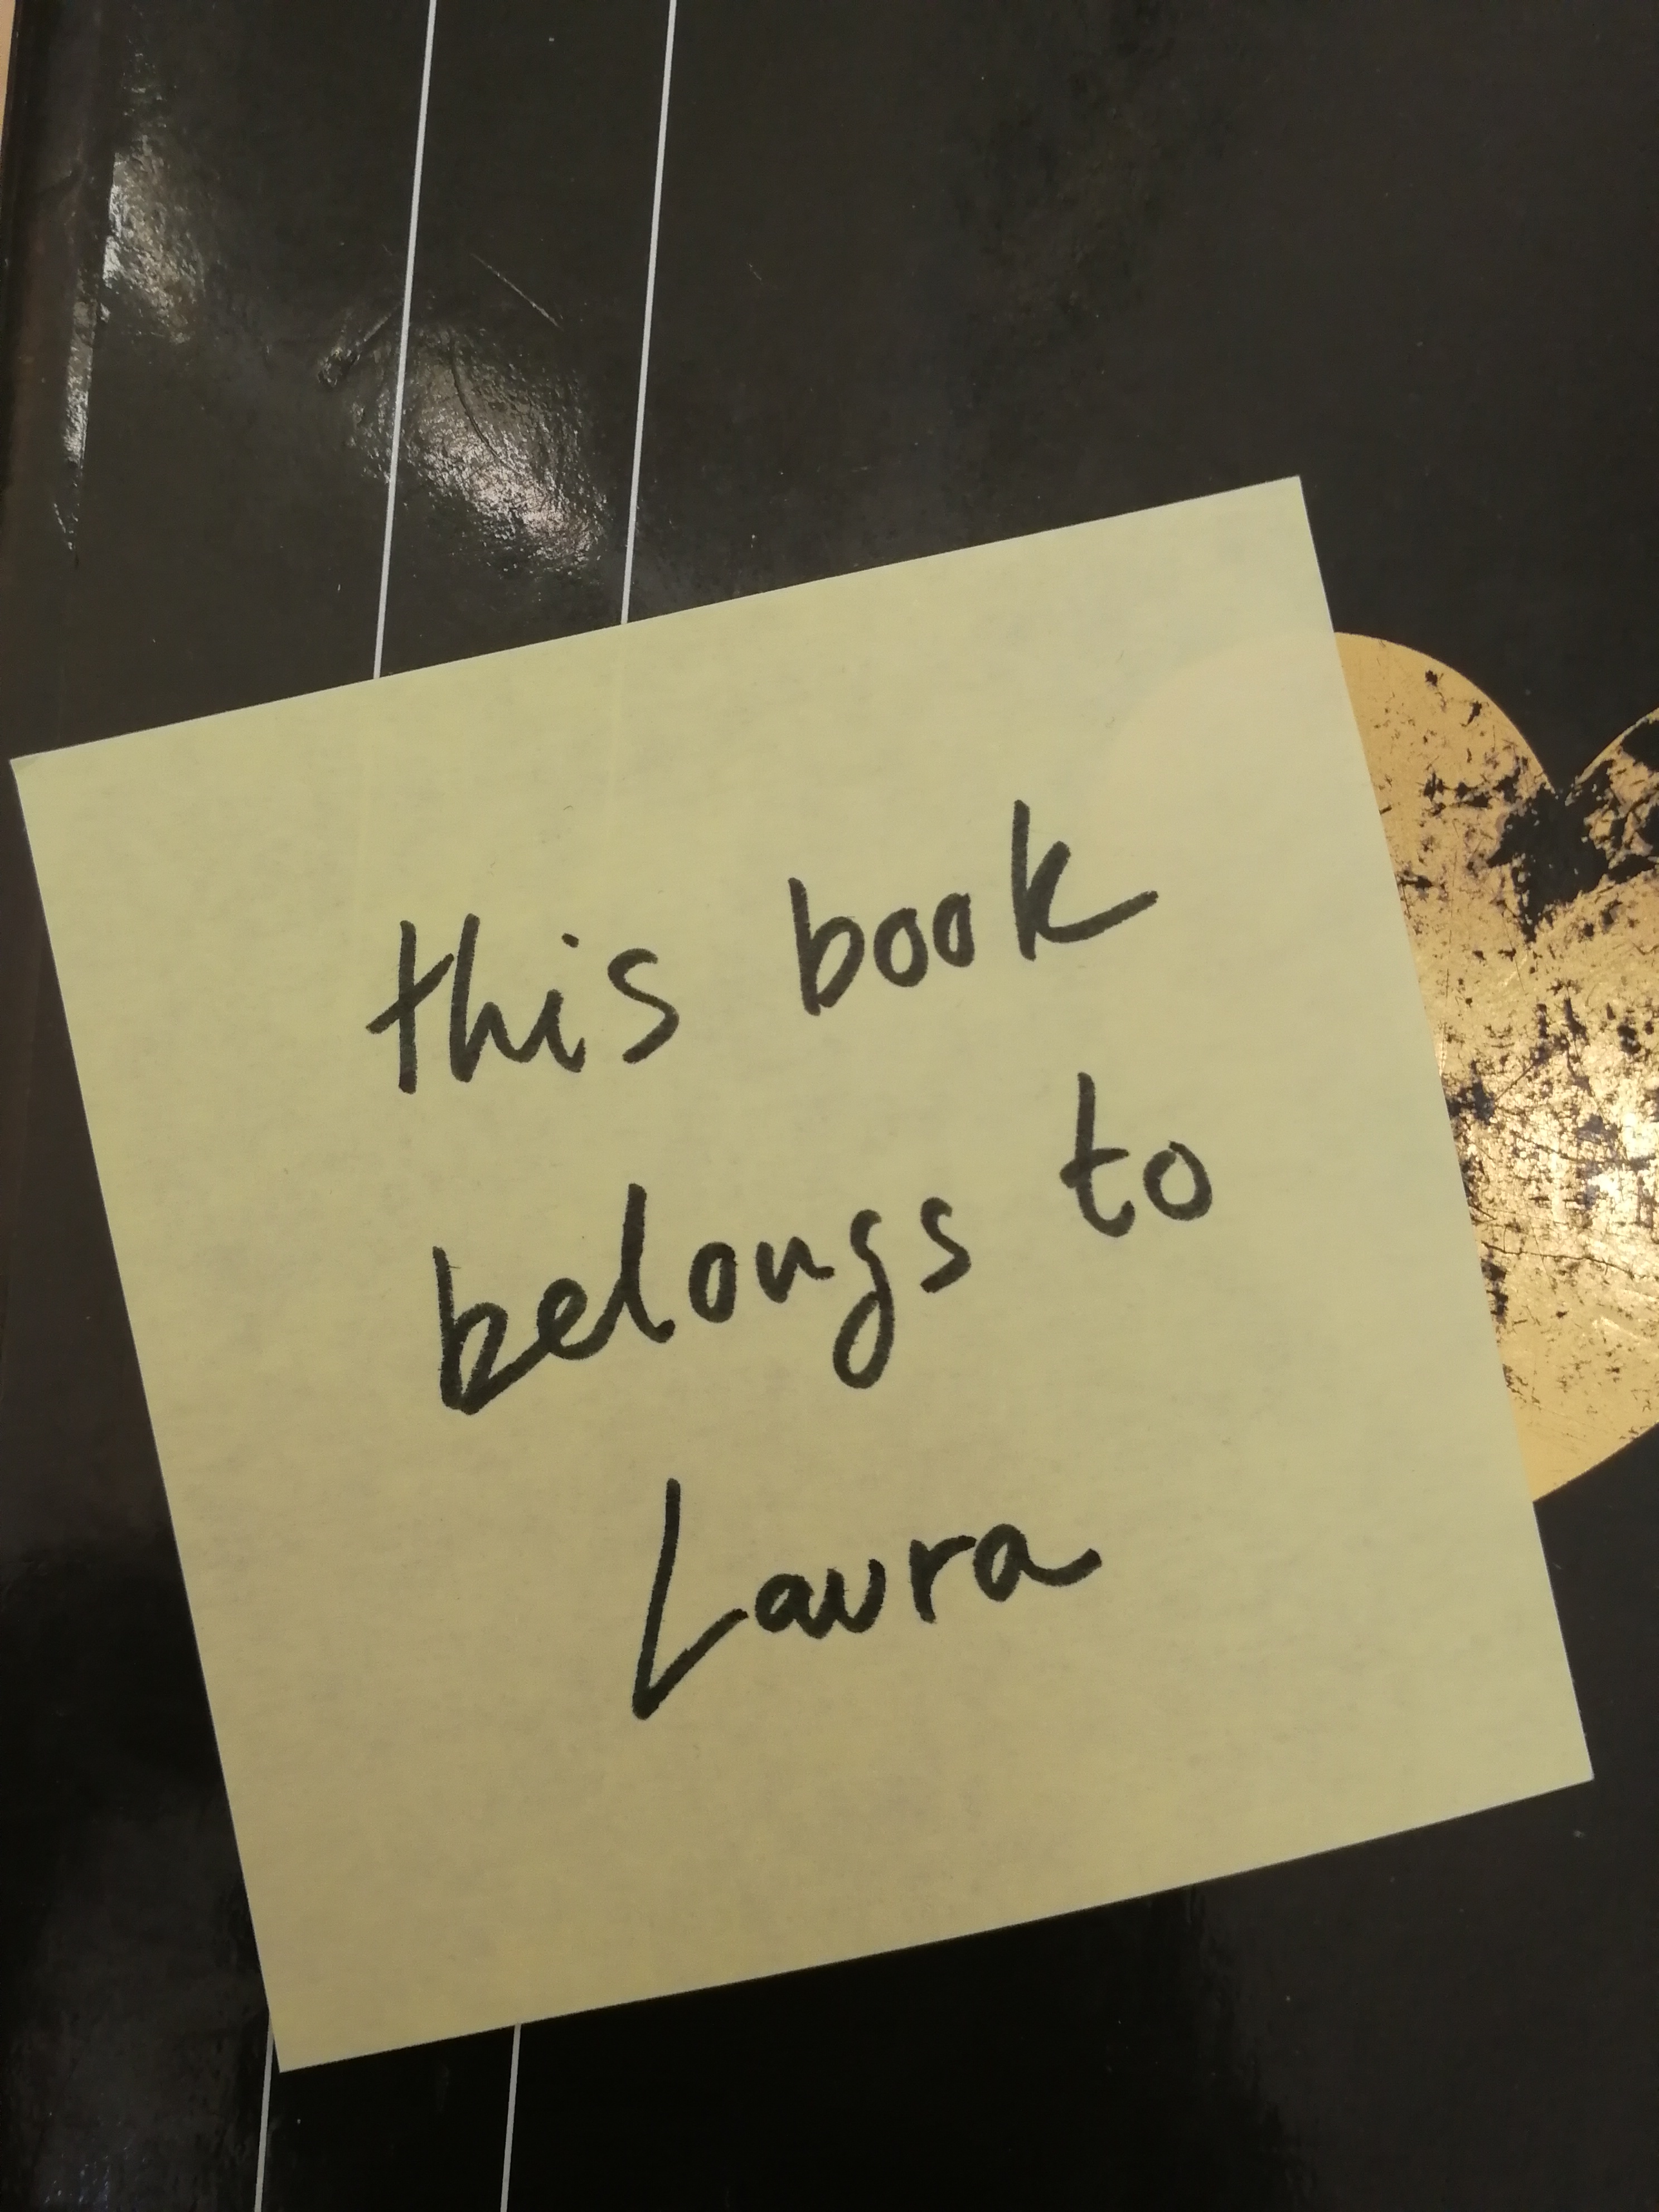 this book
belongs to
Laura